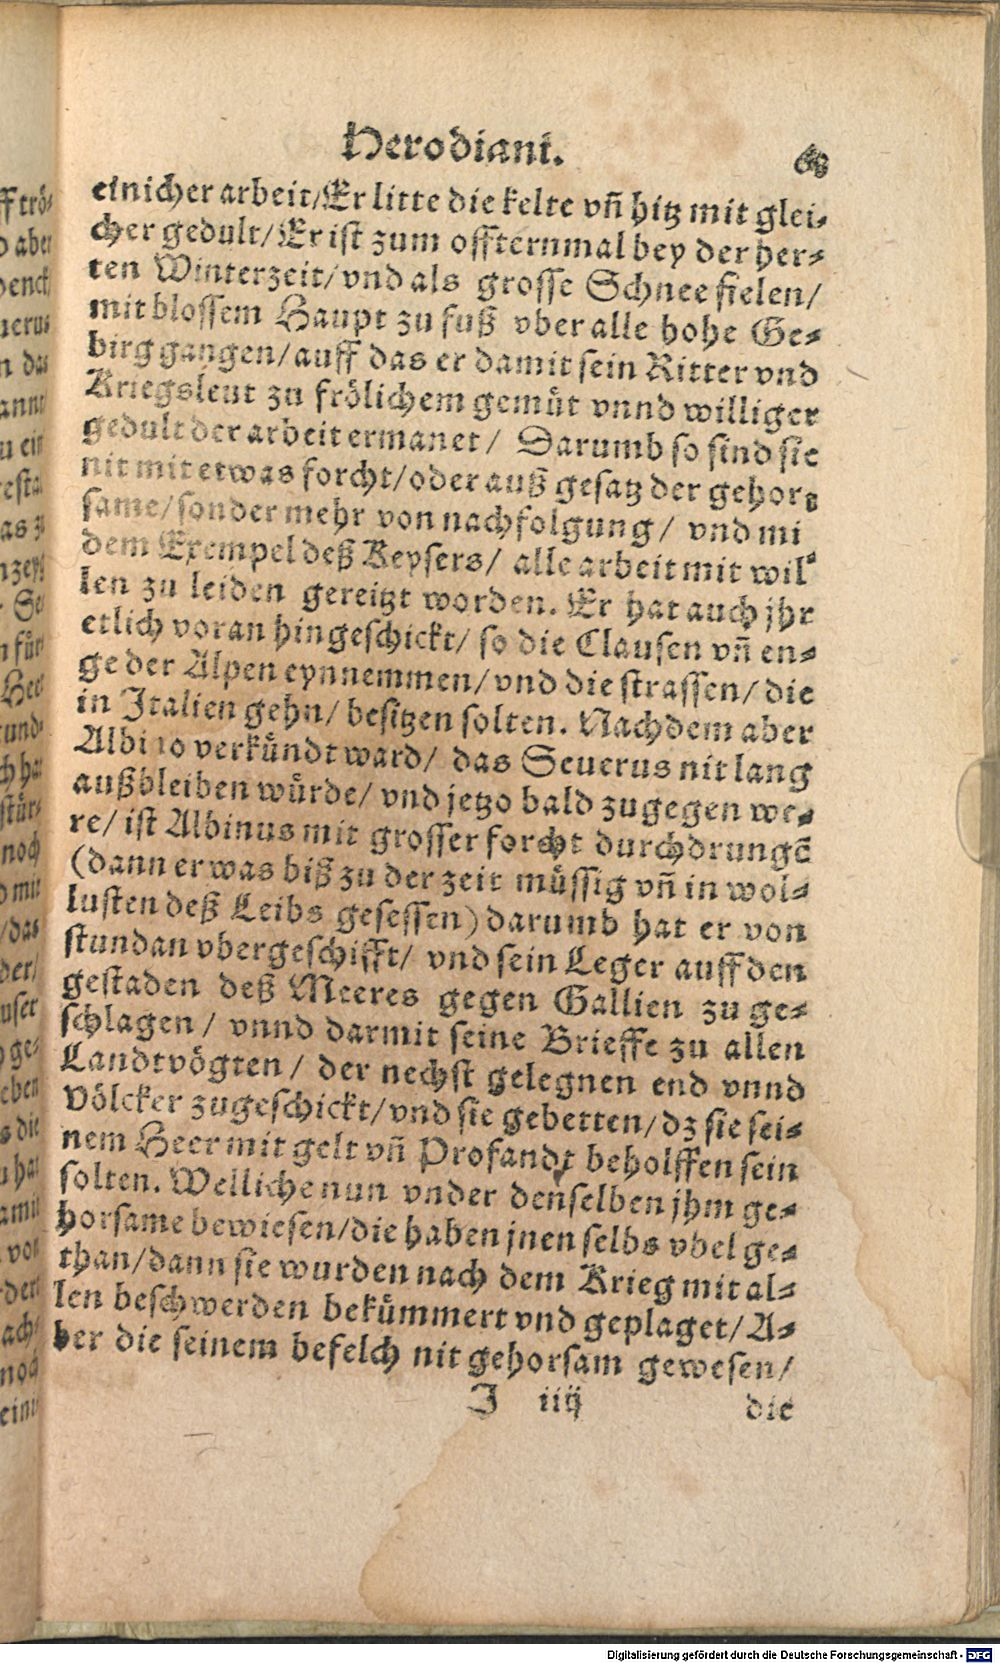 Herodiani.
einicher arbeit/Er litte die kelte vñ hitz mit glei-
cher gedult/Er ist zum offternmal bey der her-
ten Winterzeit/vnd als grosse Schnee fielen/
mit blossem Haupt zu fuß vber alle hohe Ge-
birg gangen/auff das er damit sein Ritter vnd
Kriegsleut zu frölichem gemüt vnnd williger
gedult der arbeit ermanet/ Darumb so sind sie
nit mit etwas forcht/oder auß gesatz der gehor-
same/sonder mehr von nachfolgung/ vnd mi
dem Exempel deß Keysers/ alle arbeit mit wil-
len zu leiden gereitzt worden. Er hat auch jhr
etlich voran hingeschickt/ so die Clausen vñ en-
ge der Alpen eynnemmen/vnd die strassen/ die
in Italien gehn/ besitzen solten. Nachdem aber
Albino verkündt ward/ das Seuerus nit lang
außbleiben würde/ vnd jetzo bald zugegen we-
re/ ist Albinus mit grosser forcht durchdrungẽ
(dann er was biß zu der zeit müssig vñ in wol-
lusten deß Leibs gesessen) darumb hat er von
stundan vbergeschifft/ vnd sein Leger auff den
gestaden deß Meeres gegen Gallien zu ge-
schlagen/ vnnd darmit seine Brieffe zu allen
Landtvögten/ der nechst gelegnen end vnnd
Völcker zugeschickt/vnd sie gebetten/dz sie sei-
nem Heer mit gelt vñ Profandt beholffen sein
solten. Welliche nun vnder denselben jhm ge-
horsame bewiesen/die haben jnen selbs vbel ge-
than/dann sie wurden nach dem Krieg mit al-
len beschwerden bekümmert vnd geplaget/A-
ber die seinem befelch nit gehorsam gewesen/
J iiij die
Digitalisierung gefördert durch die Deutsche Forschungsgemeinschaft - DFG